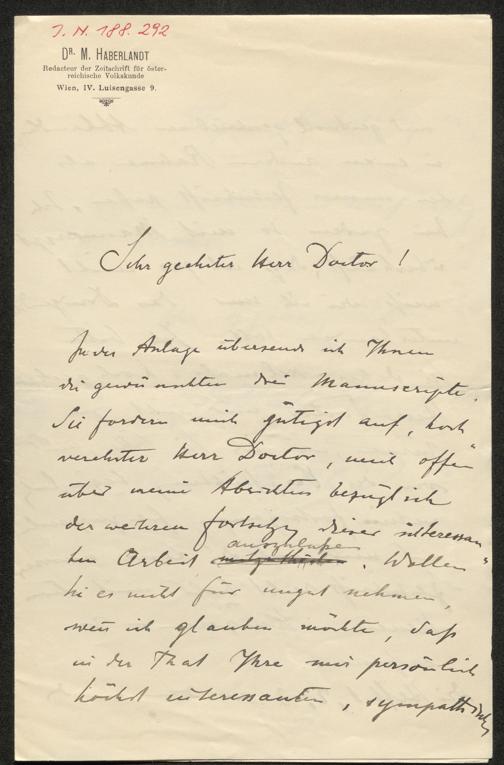 J. N. 188.292
Dr. M. Haberlandt
Redacteur der Zeitschrift für öster-
reichische Volkskunde
Wien, IV. Luisengasse 9.
Sehr geehrter Herr Doctor!
In der Anlage übersende ich Ihnen
die gewünschten drei Manuscripte.
Sie fordern mich gütigst auf, hoch
verehrter Herr Doctor, mich offen
über meine Absichten bezüglich
der weiteren Fortsetzg dieser interessan-
auszulaßen
ten Arbeit . Wollen
Sie es nicht für ungut nehmen,
wenn ich glauben möchte, daß
in der That Ihre mir persönlich
höchst interessanten, sympathischen